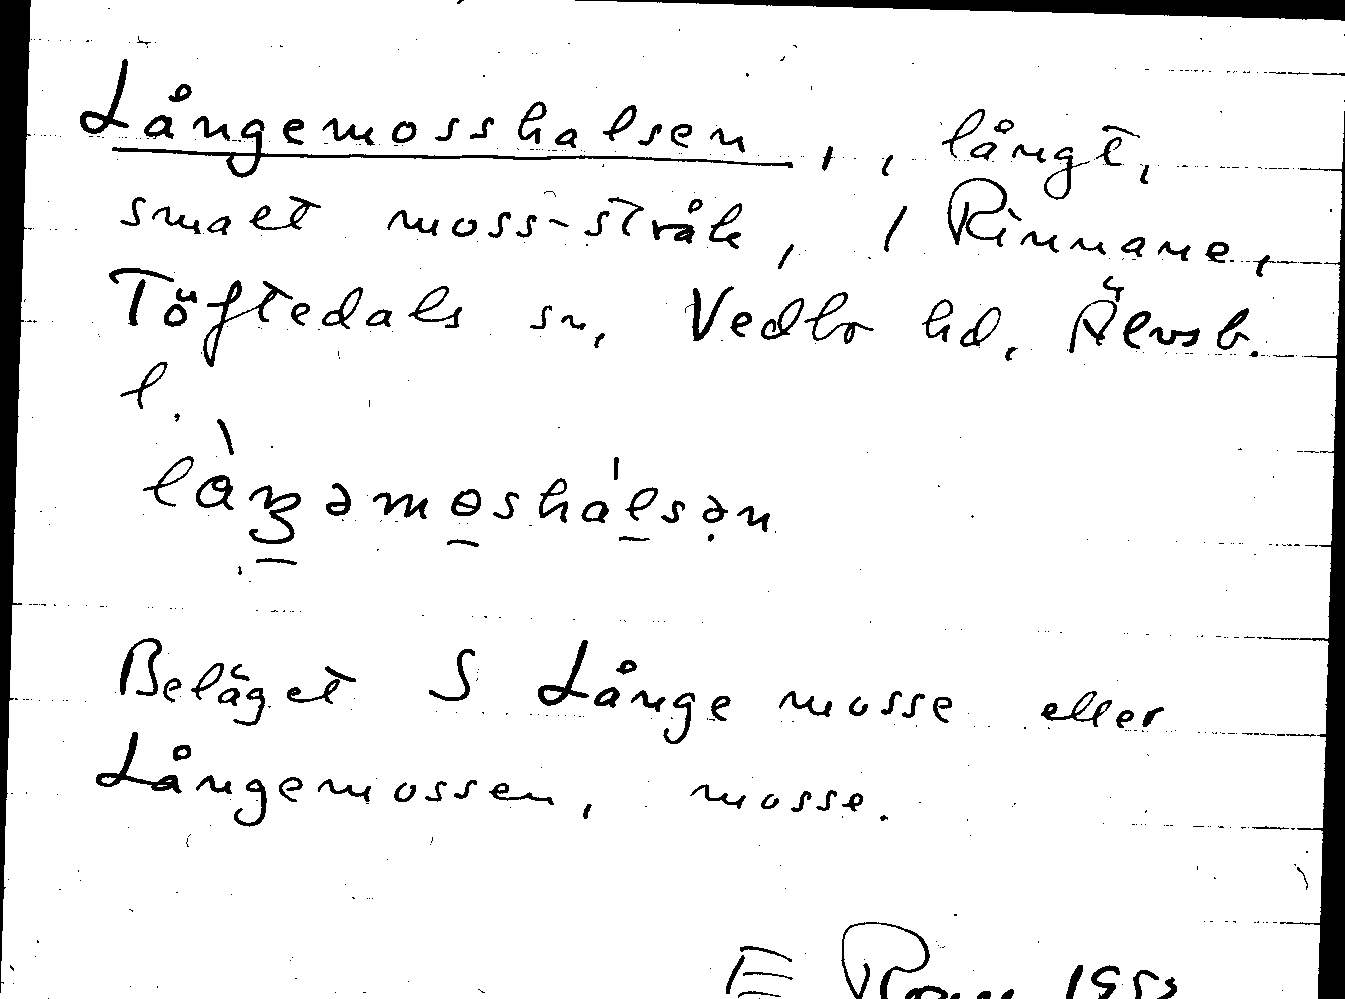 Långemosshalsen, , långt,
smalt moss-stråk, i Rinnane,
Töftedals sn, Vedbo hd, Älvsb.
l.
Beläget S Långe mosse eller
Långemossen, mosse.
E